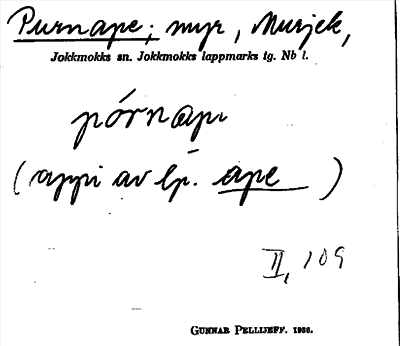 Purnape; myr, Murjek,
Jokkmokks sn. Jokkmokks lappmarks tg. Nb l.
pórnapi
(appi av lp. ape)
II, 109
GUNNAR PELLIJEFF. 1936.